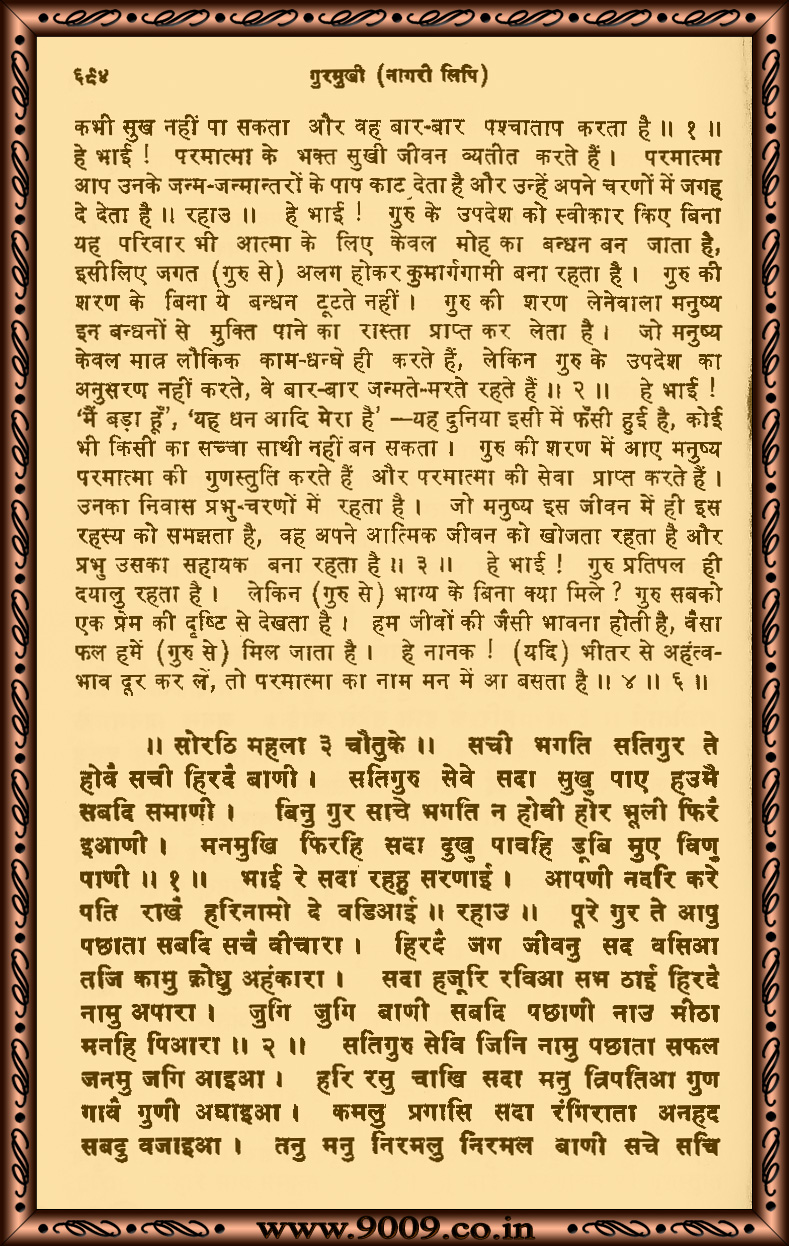 ६९४ गुरमुखी (नागरी लिपि)
कभी सुख नहीं पा सकता और वह बार-बार पश्चाताप करता है ॥ १ ॥
हे भाई ! परमात्मा के भक्त सुखी जीवन व्यतीत करते हैं । परमात्मा
आप उनके जन्म-जन्मान्तरों के पाप काट देता है और उन्हें अपने चरणों में जगह
दे देता है ॥ रहाउ ॥ हे भाई ! गुरु के उपदेश को स्वीकार किए बिना
यह परिवार भी आत्मा के लिए केवल मोह का बन्धन बन जाता है,
इसीलिए जगत (गुरु से) अलग होकर कुमार्गगामी बना रहता है । गुरु की
शरण के बिना ये बन्धन टूटते नहीं । गुरु की शरण लेनेवाला मनुष्य
इन बन्धनों से मुक्ति पाने का रास्ता प्राप्त कर लेता है । जो मनुष्य
केवल मात्र लौकिक काम-धन्धे ही करते हैं, लेकिन गुरु के उपदेश का
अनुसरण नहीं करते, वे बार-बार जन्मते-मरते रहते हैं ॥ २ ॥ हे भाई !
‘मैं बड़ा हूँ’, ‘यह धन आदि मेरा है’ —यह दुनिया इसी में फँसी हुई है, कोई
भी किसी का सच्चा साथी नहीं बन सकता । गुरु की शरण में आए मनुष्य
परमात्मा की गुणस्तुति करते हैं और परमात्मा की सेवा प्राप्त करते हैं ।
उनका निवास प्रभु-चरणों में रहता है । जो मनुष्य इस जीवन में ही इस
रहस्य को समझता है, वह अपने आत्मिक जीवन को खोजता रहता है और
प्रभु उसका सहायक बना रहता है ॥ ३ ॥ हे भाई ! गुरु प्रतिपल ही
दयालु रहता है । लेकिन (गुरु से) भाग्य के बिना क्या मिले ? गुरु सबको
एक प्रेम की दृष्टि से देखता है । हम जीवों की जैसी भावना होती है, वैसा
फल हमें (गुरु से) मिल जाता है । हे नानक ! (यदि) भीतर से अहंत्व-
भाव दूर कर लें, तो परमात्मा का नाम मन में आ बसता है ॥ ४ ॥ ६ ॥
॥ सोरठि महला ३ चौतुके ॥ सची भगति सतिगुर ते
होवै सची हिरदै बाणी । सतिगुरु सेवे सदा सुखु पाए हउमै
सबदि समाणी । बिनु गुर साचे भगति न होवी होर भूली फिरै
इआणी । मनमुखि फिरहि सदा दुखु पावहि डूबि मुए विणु
पाणी ॥ १ ॥ भाई रे सदा रहहु सरणाई । आपणी नदरि करे
पति राखै हरिनामो दे वडिआई ॥ रहाउ ॥ पूरे गुर ते आपु
पछाता सबदि सचै वीचारा । हिरदै जग जीवनु सद वसिआ
तजि कामु क्रोधु अहंकारा । सदा हजूरि रविआ सभ ठाई हिरदै
नामु अपारा । जुगि जुगि बाणी सबदि पछाणी नाउ मीठा
मनहि पिआरा ॥ २ ॥ सतिगुरु सेवि जिनि नामु पछाता सफल
जनमु जगि आइआ । हरि रसु चाखि सदा मनु त्रिपतिआ गुण
गावै गुणी अघाइआ । कमलु प्रगासि सदा रंगिराता अनहद
सबदु वजाइआ । तनु मनु निरमलु निरमल बाणी सचे सचि
www.9009.co.in